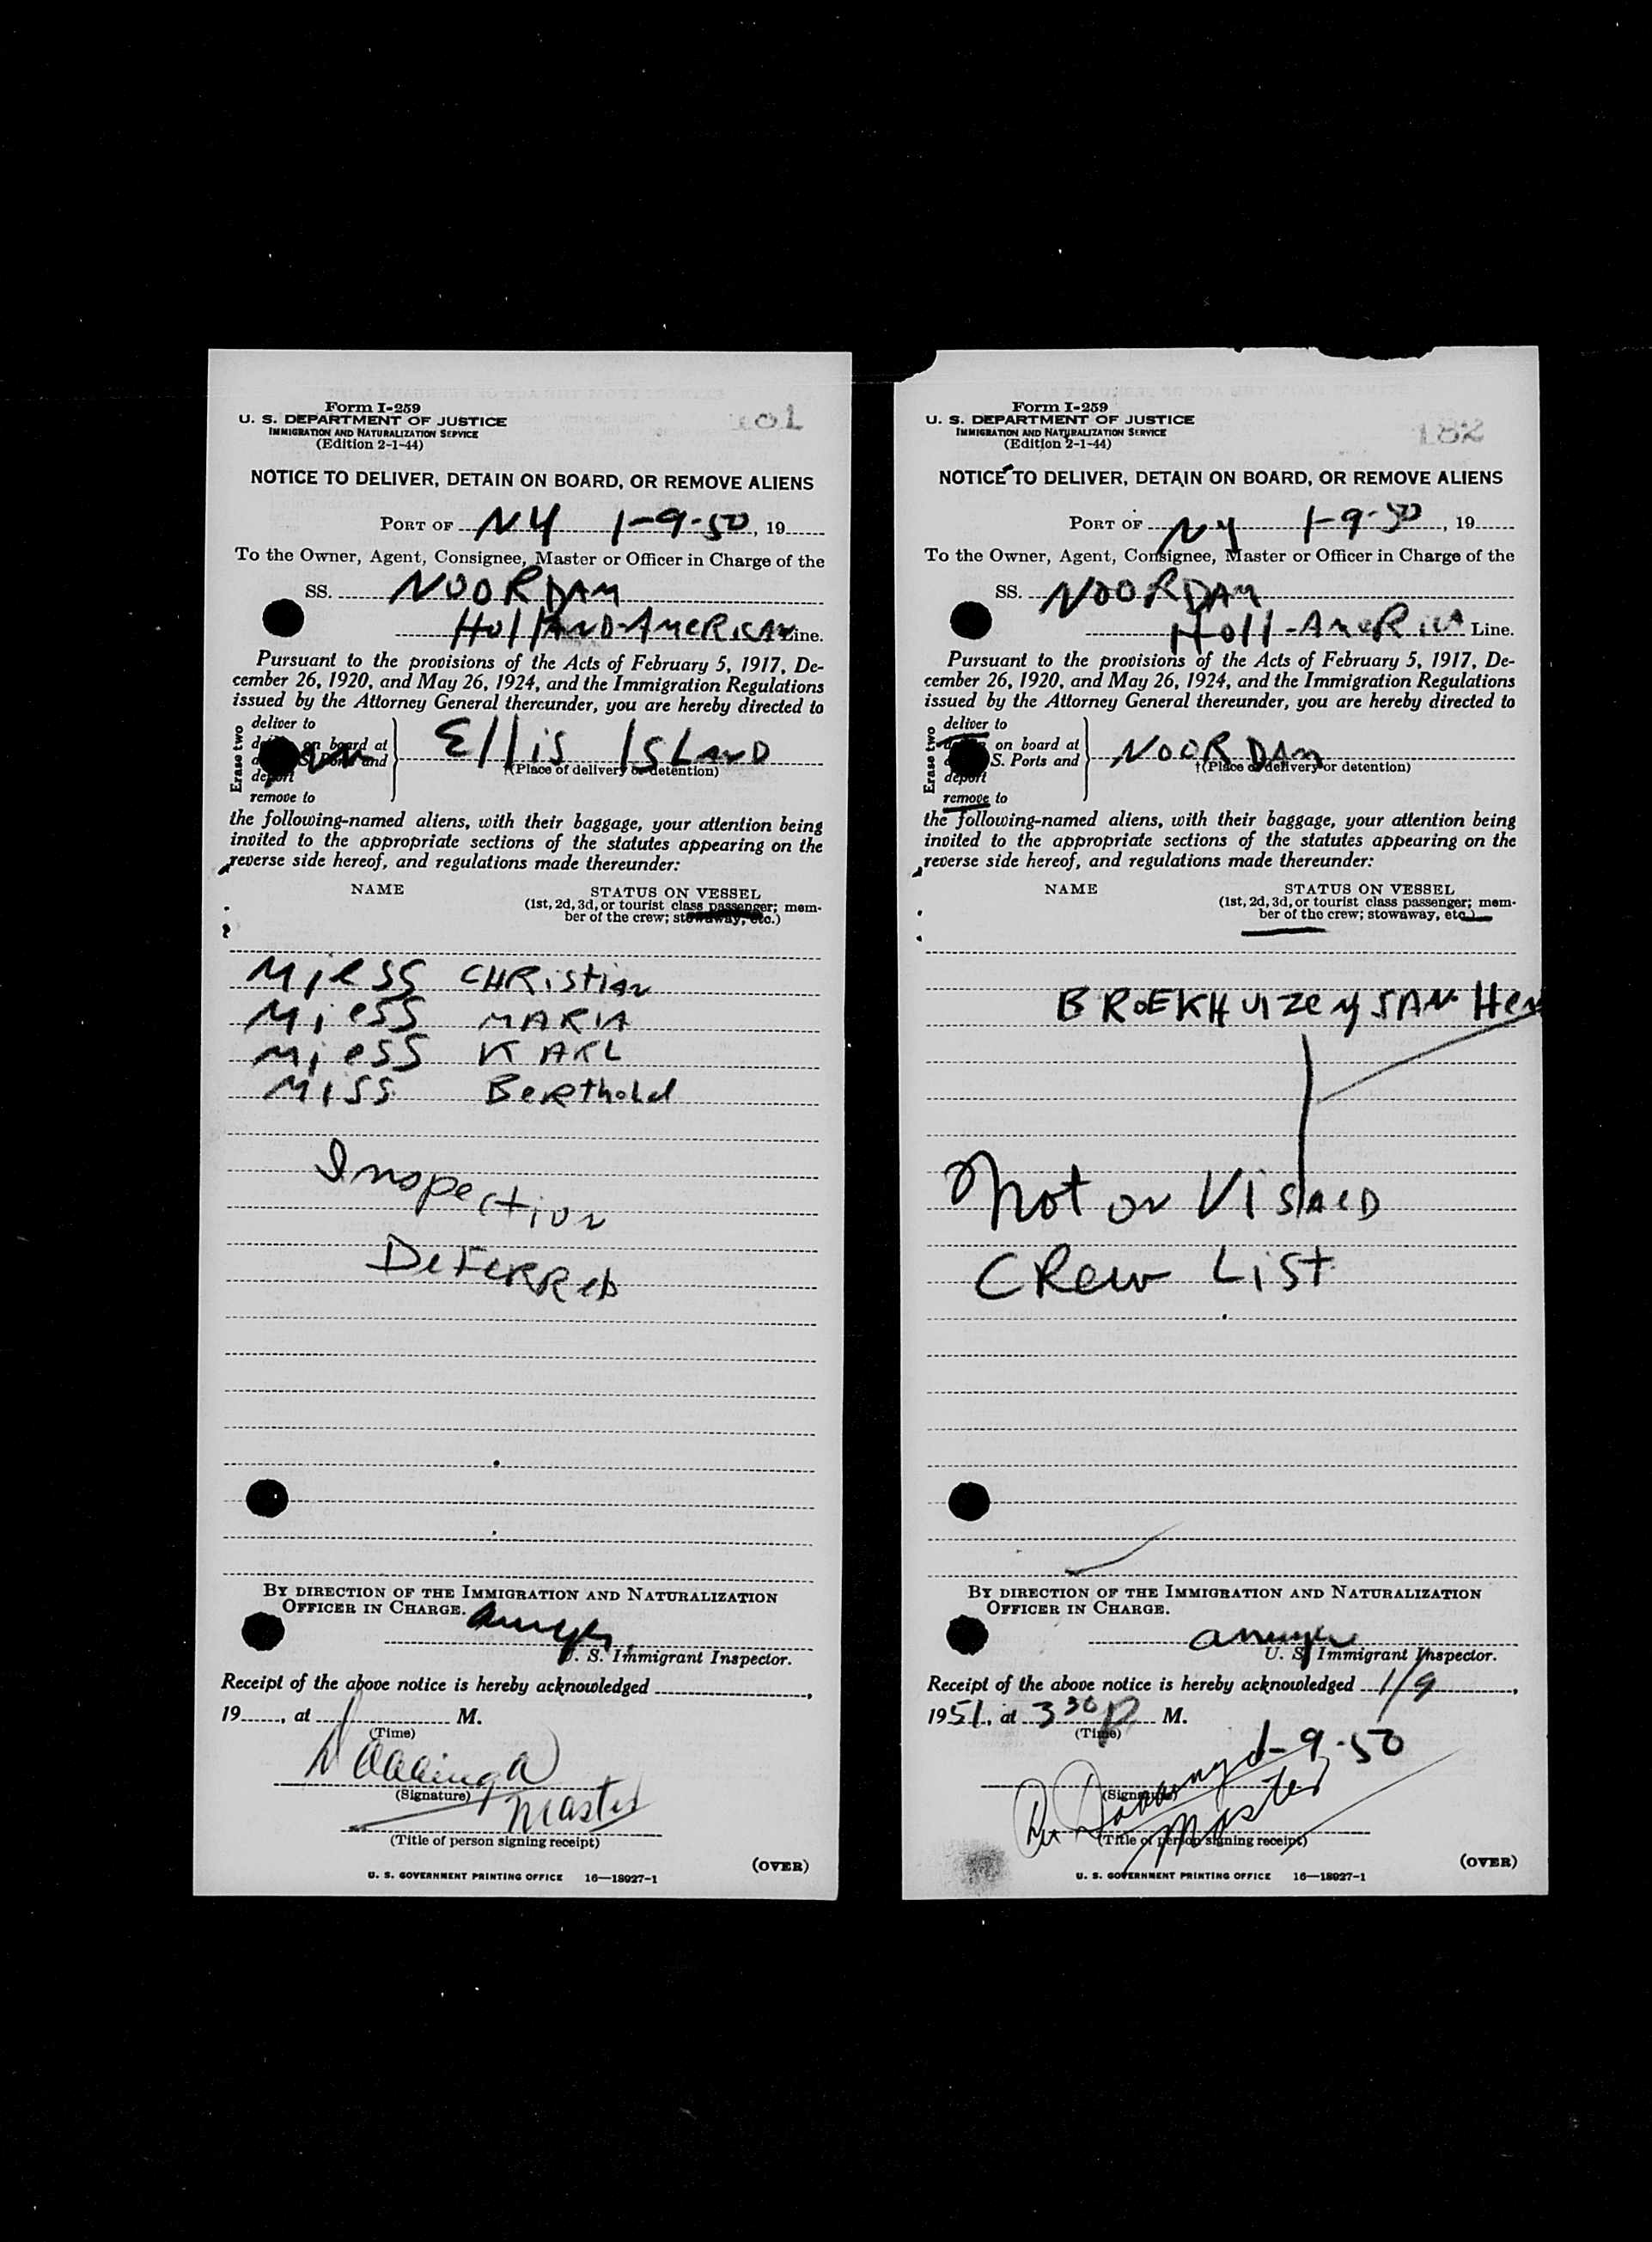 Form I-259
U. S. DEPARTMENT OF JUSTICE
IMMIGRATION AND NATURALIZATION SERVICE
(Edition 2-1-44)
NOTICE TO DELIVER, DETAIN ON BOARD, OR REMOVE ALIENS
PORT OF NY 1-9-50, 19
To the Owner, Agent, Consignee, Master or Officer in Charge of the
SS. NOORDAM
HOLLAND-AMERICAN Line.
Pursuant to the provisions of the Acts of February 5, 1917, De-
cember 26, 1920, and May 26, 1924, and the Immigration Regulations
issued by the Attorney General thereunder, you are hereby directed to
Erase two
deliver to
on board at
Ports and
deport
remove to
Ellis ISLAND
†(Place of delivery or detention)
the following-named aliens, with their baggage, your attention being
invited to the appropriate sections of the statutes appearing on the
reverse side hereof, and regulations made thereunder:
NAME
STATUS ON VESSEL
(1st, 2d, 3d, or tourist class passenger; mem-
ber of the crew; stowaway, etc.)
Miess CHRistian
Miess MARIA
Miess KARL
MISS Berthold
Inspection
DeFeRRed
BY DIRECTION OF THE IMMIGRATION AND NATURALIZATION
OFFICER IN CHARGE.
U. S. Immigrant Inspector.
Receipt of the above notice is hereby acknowledged
19, at M.
(Time)
(Signature)
Master
(Title of person signing receipt)
(OVER)
U. S. GOVERNMENT PRINTING OFFICE 16—18927-1
Form I-259
182
U. S. DEPARTMENT OF JUSTICE
IMMIGRATION AND NATURALIZATION SERVICE
(Edition 2-1-44)
NOTICE TO DELIVER, DETAIN ON BOARD, OR REMOVE ALIENS
PORT OF NY 1-9-50, 19
To the Owner, Agent, Consignee, Master or Officer in Charge of the
SS. NOORDAM
Holl-AmeRica Line.
Pursuant to the provisions of the Acts of February 5, 1917, De-
cember 26, 1920, and May 26, 1924, and the Immigration Regulations
issued by the Attorney General thereunder, you are hereby directed to
Erase two
deliver to
on board at
S. Ports and
deport
remove to
NOORDAM
†(Place of delivery or detention)
the following-named aliens, with their baggage, your attention being
invited to the appropriate sections of the statutes appearing on the
reverse side hereof, and regulations made thereunder:
NAME
STATUS ON VESSEL
(1st, 2d, 3d, or tourist class passenger; mem-
ber of the crew; stowaway, etc.)
BROEKHUIZEN
Not on VISAED
CRew List
BY DIRECTION OF THE IMMIGRATION AND NATURALIZATION
OFFICER IN CHARGE.
U. S. Immigrant Inspector.
Receipt of the above notice is hereby acknowledged 1/9,
1951, at 330 P M.
(Time)
1-9-50
(Signature)
Master
(Title of person signing receipt)
(OVER)
U. S. GOVERNMENT PRINTING OFFICE 16—18927-1